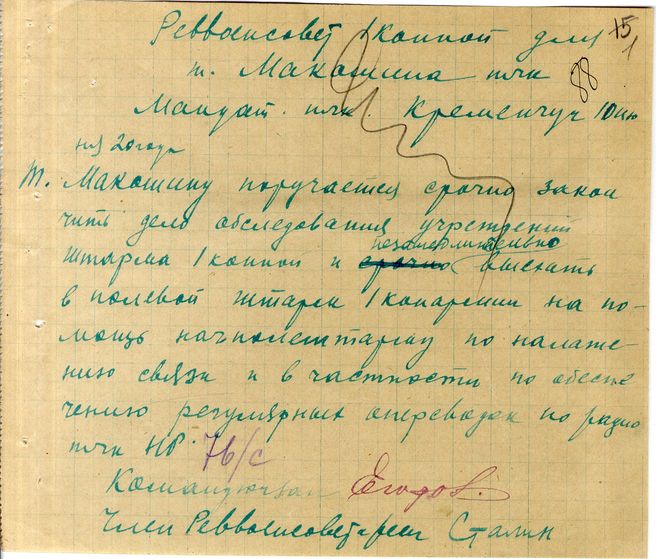 Реввоенсовет 1 Конной для
15
1
т. Макошина тчк
88
Мандат. тчк. Кременчуг 10 ию
ня 20 года
Т. Макошину поручается срочно закон
чить дело обследования учреждений
незамедлительно
штарма 1 конной и срочно выехать
в полевой штарм 1 конармии на по-
мощь начполештарму по налаже-
нию связи и в частности по обеспе
чению регулярных оперсводок по радио
тчк НР. 76/с
Командюгзап Егоров.
Член Реввоенсовета респ Сталин